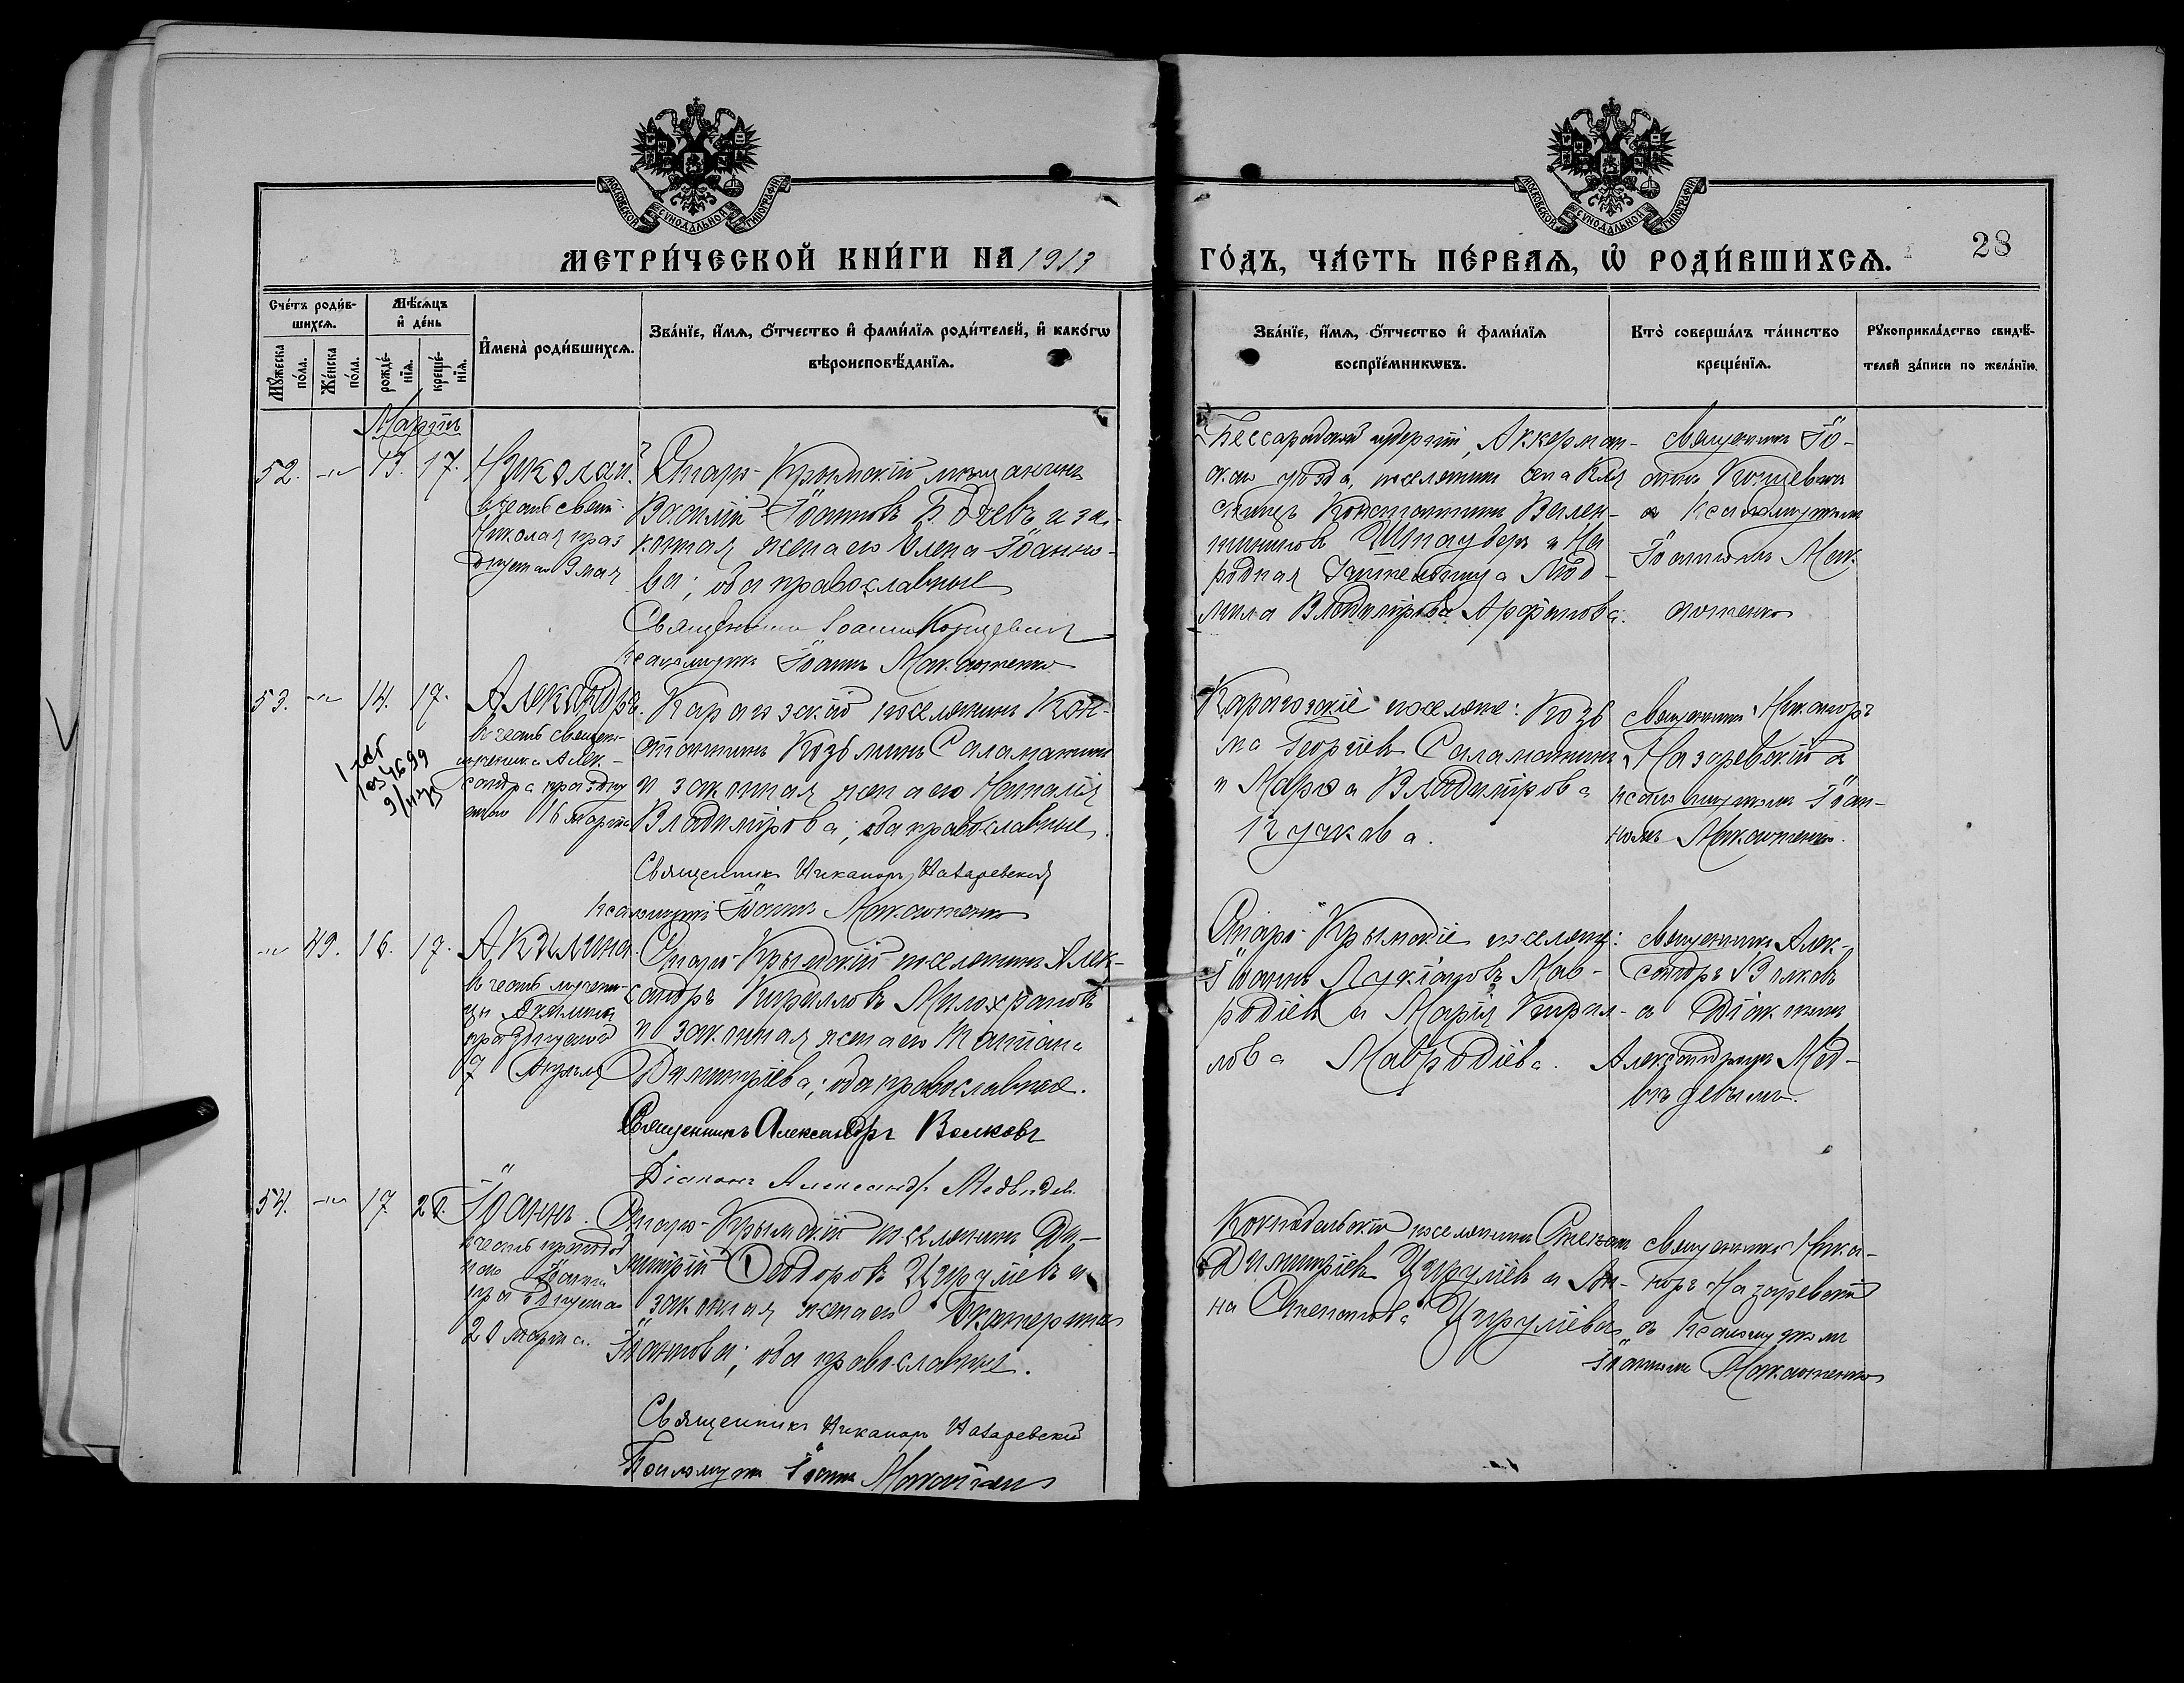 МОСКОВСКОЙ СѴНОДАЛЬНОЙ ТИПОГРАФІИ
МОСКОВСКОЙ СѴНОДАЛЬНОЙ ТИПОГРАФІИ
МЕТРИ́ЧЕСКОЙ КНИ́ГИ НА 1913
ГО́ДЪ, ЧА́СТЬ ПЕ́РВАѦ, Ѡ҆ РОДИ́ВШИХСѦ.
28
Сче́тъ роди́в-
шихсѧ.
Мꙋ́жеска по́ла.
Же́нска по́ла.
Мѣ́сѧцъ
и҆ де́нь
рожде́-
нїѧ.
креще́-
нїѧ.
И҆мена̀ роди́вшихсѧ.
Зва́нїе, и҆́мѧ, ѻ҆́тчество и҆ фами́лїѧ роди́телей, и҆ како́гѡ
вѣроисповѣ́данїѧ.
Зва́нїе, и҆́мѧ, ѻ҆́тчество и҆ фами́лїѧ
воспрїе́мникѡвъ.
Кто̀ соверша́лъ та́инство
креще́нїѧ.
Рꙋкоприкла́дство свидѣ́-
телей за́писи по жела́нїю.
Мартъ
52. -"- 13. 17. Николай.
въ честь свят.
Николая праз
днуемаго 9 мая
Старо-Крымскій мѣщанинъ
Василій Іоанновъ Бочевъ и за-
конная жена его Елена Іоанно-
ва; оба православные
Священникъ Іоаннъ
Псаломщикъ Іоаннъ Макаютенко
Бессарабской губерніи, Аккерман-
скаго уѣзда, поселянинъ села
Константинъ Вален-
тиновъ и На
родная Учительница Люд-
мила Владимірова
Священникъ Іо-
аннъ
съ Псаломщикомъ
Іоанномъ Мак-
аютенко
53. -"- 14. 17. Александръ.
въ честь священно-
мученика Алек-
сандра праздну
емаго 16 марта
9/
Карагозскій поселянинъ Кон-
стантинъ Козьминъ Саламатинъ
и законная жена его Наталія
Владимірова; оба православные.
Священникъ Никаноръ Назаревскій
Псаломщикъ Іоаннъ Макаютенко
Карагозскіе поселяне: Козь
ма Георгіевъ Саламатинъ
и Марѳа Владимірова
Священникъ Никаноръ
Назаревскій съ
псаломщикомъ Іоан-
номъ Макаютенко.
-"- 49. 16. 17. Акилина.
въ честь мучени-
цы Акилины
празднуемой
7 Апрѣля
Старо-Крымскій поселянинъ Алек-
сандръ Кирилловъ Милохрановъ
и законная жена его Татіана
Димитріева; оба православные.
Священникъ Александръ Волковъ
Діаконъ Александръ Медвѣдевъ
Старо-Крымскіе поселяне:
Іоаннъ Лукіановъ Мав-
родіевъ и Марія Кирил-
лова Мавродіева.
Священникъ Алек-
сандръ Волковъ
съ Діакономъ
Александромъ Мед-
вѣдевымъ.
54. -"- 17. 20. Іоаннъ.
въ честь преподоб
наго Іоанна
празднуемаго
20 марта.
Старо-Крымскій поселянинъ Ди-
митрій Ѳеодоровъ Цируліевъ и
законная жена его Екатерина
Іоаннова; оба православные.
Священникъ Никаноръ Назаревскій
Псаломщикъ Іоаннъ Макаютенко
поселянинъ Стефанъ
Димитріевъ Цируліевъ и Ан-
на Степанова Цируліева
Священникъ Ника-
норъ Назаревскій
съ псаломщикомъ
Іоанномъ Макаютенко